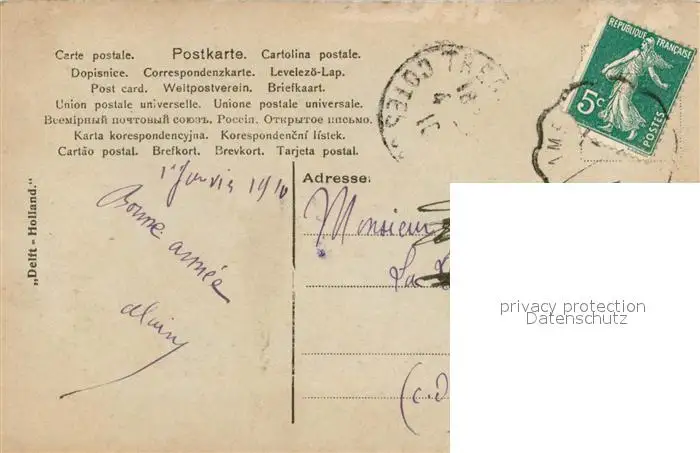 Carte postale. Postkarte. Cartolina postale.
Dopisnice. Correspondenzkarte. Levelező-Lap.
Post card. Weltpostverein. Briefkaart.
Union postale universelle. Unione postale universale.
Всемірный почтовый союзъ. Россія. Открытое письмо.
Karta korespondencyjna. Korespondenční lístek.
Cartão postal. Brefkort. Brevkort. Tarjeta postal.
RÉPUBLIQUE FRANÇAISE
5c
POSTES
COTES
1er Janvier 1910
Bonne année
„Delft = Holland."
Adresse:
Monsieur
privacy protection
Datenschutz